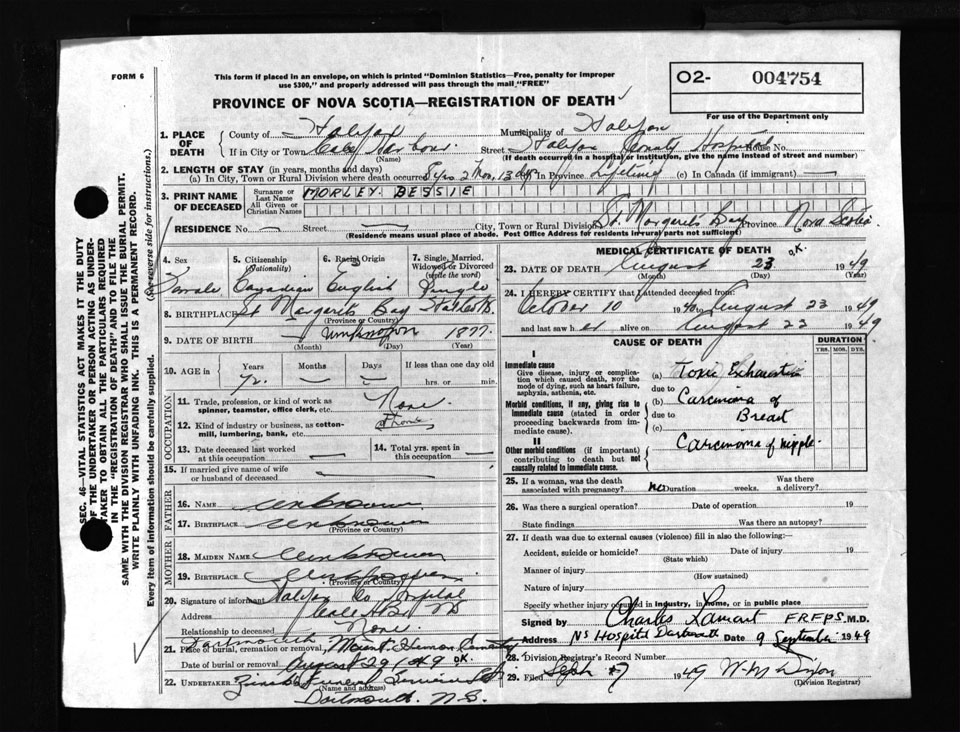 FORM 6
This form if placed in an envelope, on which is printed "Dominion Statistics—Free, penalty for improper
use $300," and properly addressed will pass through the mail "FREE"
O2- 004754
For use of the Department only
PROVINCE OF NOVA SCOTIA—REGISTRATION OF DEATH
1. PLACE OF DEATH
County of Halifax
Municipality of Halifax
If in City or Town Cole Harbour (Name)
Street Halifax County Hospital House No.
(If death occurred in a hospital or institution, give the name instead of street and number)
2. LENGTH OF STAY (in years, months and days)
(a) In City, Town or Rural Division where death occurred 8 yrs 2 mos, 13 dys In Province Lifetime (c) In Canada (if immigrant) —
3. PRINT NAME OF DECEASED
Surname or Last Name
All Given or Christian Names
MORLEY BESSIE
RESIDENCE No. — Street — City, Town or Rural Division St. Margarets Bay Province Nova Scotia
(Residence means usual place of abode. Post Office Address for residents in rural parts not sufficient)
4. Sex
Female
5. Citizenship (Nationality)
Canadian
6. Racial Origin
English
7. Single, Married, Widowed or Divorced (write the word)
Single
8. BIRTHPLACE St Margarets Bay Halifax Co.
(Province or Country)
9. DATE OF BIRTH Unknown 1877
(Month) (Day) (Year)
10. AGE in
Years Months Days If less than one day old
72 — — hrs. or min.
OCCUPATION
11. Trade, profession, or kind of work as spinner, teamster, office clerk, etc. None
12. Kind of industry or business, as cotton-mill, lumbering, bank, etc.
13. Date deceased last worked at this occupation —
14. Total yrs. spent in this occupation —
15. If married give name of wife or husband of deceased —
FATHER
16. NAME Unknown
17. BIRTHPLACE Unknown
(Province or Country)
MOTHER
18. MAIDEN NAME Unknown
19. BIRTHPLACE Unknown
(Province or Country)
20. Signature of informant Halifax Co Hospital
Address Cole Hbr NS
Relationship to deceased None
Dartmouth
21. Place of burial, cremation or removal Mount Hermon Cemetery
Date of burial or removal August 29 1949 OK.
22. UNDERTAKER Funeral Service
(Name and address)
Dartmouth. N.S.
MEDICAL CERTIFICATE OF DEATH
O.K.
23. DATE OF DEATH August 23 1949
(Month) (Day)
24. I HEREBY CERTIFY that I attended deceased from
October 10 1940 August 23 1949
and last saw her alive on August 23 1949
CAUSE OF DEATH
DURATION
YRS. MOS. DYS.
I
Immediate cause
Give disease, injury or complication which caused death, NOT the mode of dying, such as heart failure, asphyxia, asthenia, etc.
(a) Toxic Exhaustion
due to
Morbid conditions, if any, giving rise to immediate cause (stated in order proceeding backwards from immediate cause).
(b) Carcinoma of
due to Breast
(c)
II
Other morbid conditions (if important) contributing to death but not causally related to immediate cause.
Carcinoma of nipple.
25. If a woman, was the death associated with pregnancy? no Duration weeks. Was there a delivery?
26. Was there a surgical operation? Date of operation 19
State findings Was there an autopsy?
27. If death was due to external causes (violence) fill in also the following:
Accident, suicide or homicide? Date of injury 19
(State which)
Manner of injury
(How sustained)
Nature of injury
Specify whether injury occurred in industry, in home, or in public place
Signed by Charles Lamont F.R.F.P.S. M.D.
Address NS Hospital Dartmouth Date 9 September 1949
28. Division Registrar's Record Number
29. Filed Sept 1949 W-M Dixon
(Division Registrar)
SEC. 46—VITAL STATISTICS ACT MAKES IT THE DUTY
OF THE UNDERTAKER OR PERSON ACTING AS UNDERTAKER TO OBTAIN ALL THE PARTICULARS REQUIRED
IN THE "REGISTRATION OF DEATH" AND TO FILE THE
SAME WITH THE DIVISION REGISTRAR WHO SHALL ISSUE THE BURIAL PERMIT.
WRITE PLAINLY WITH UNFADING INK. THIS IS A PERMANENT RECORD.
Every item of information should be carefully supplied. (See reverse side for instructions.)